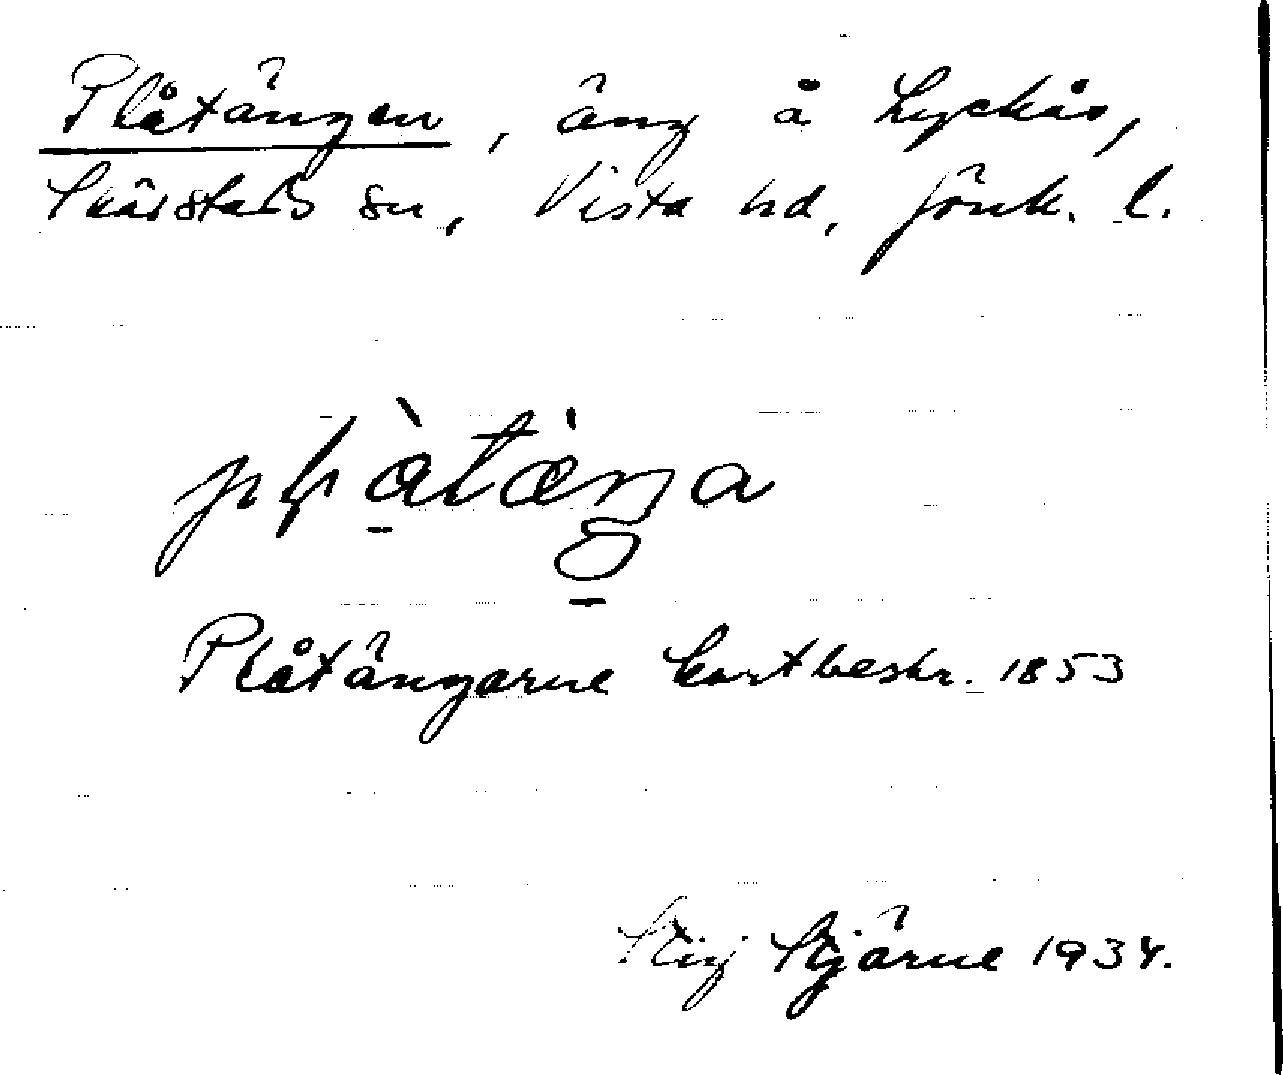 Plåtängen, äng å Lyckås,
Skärstads sn, Vista hd, Jönk. l.
Plåtängarne kartbeskr. 1853
Stig Stjärne 1934.